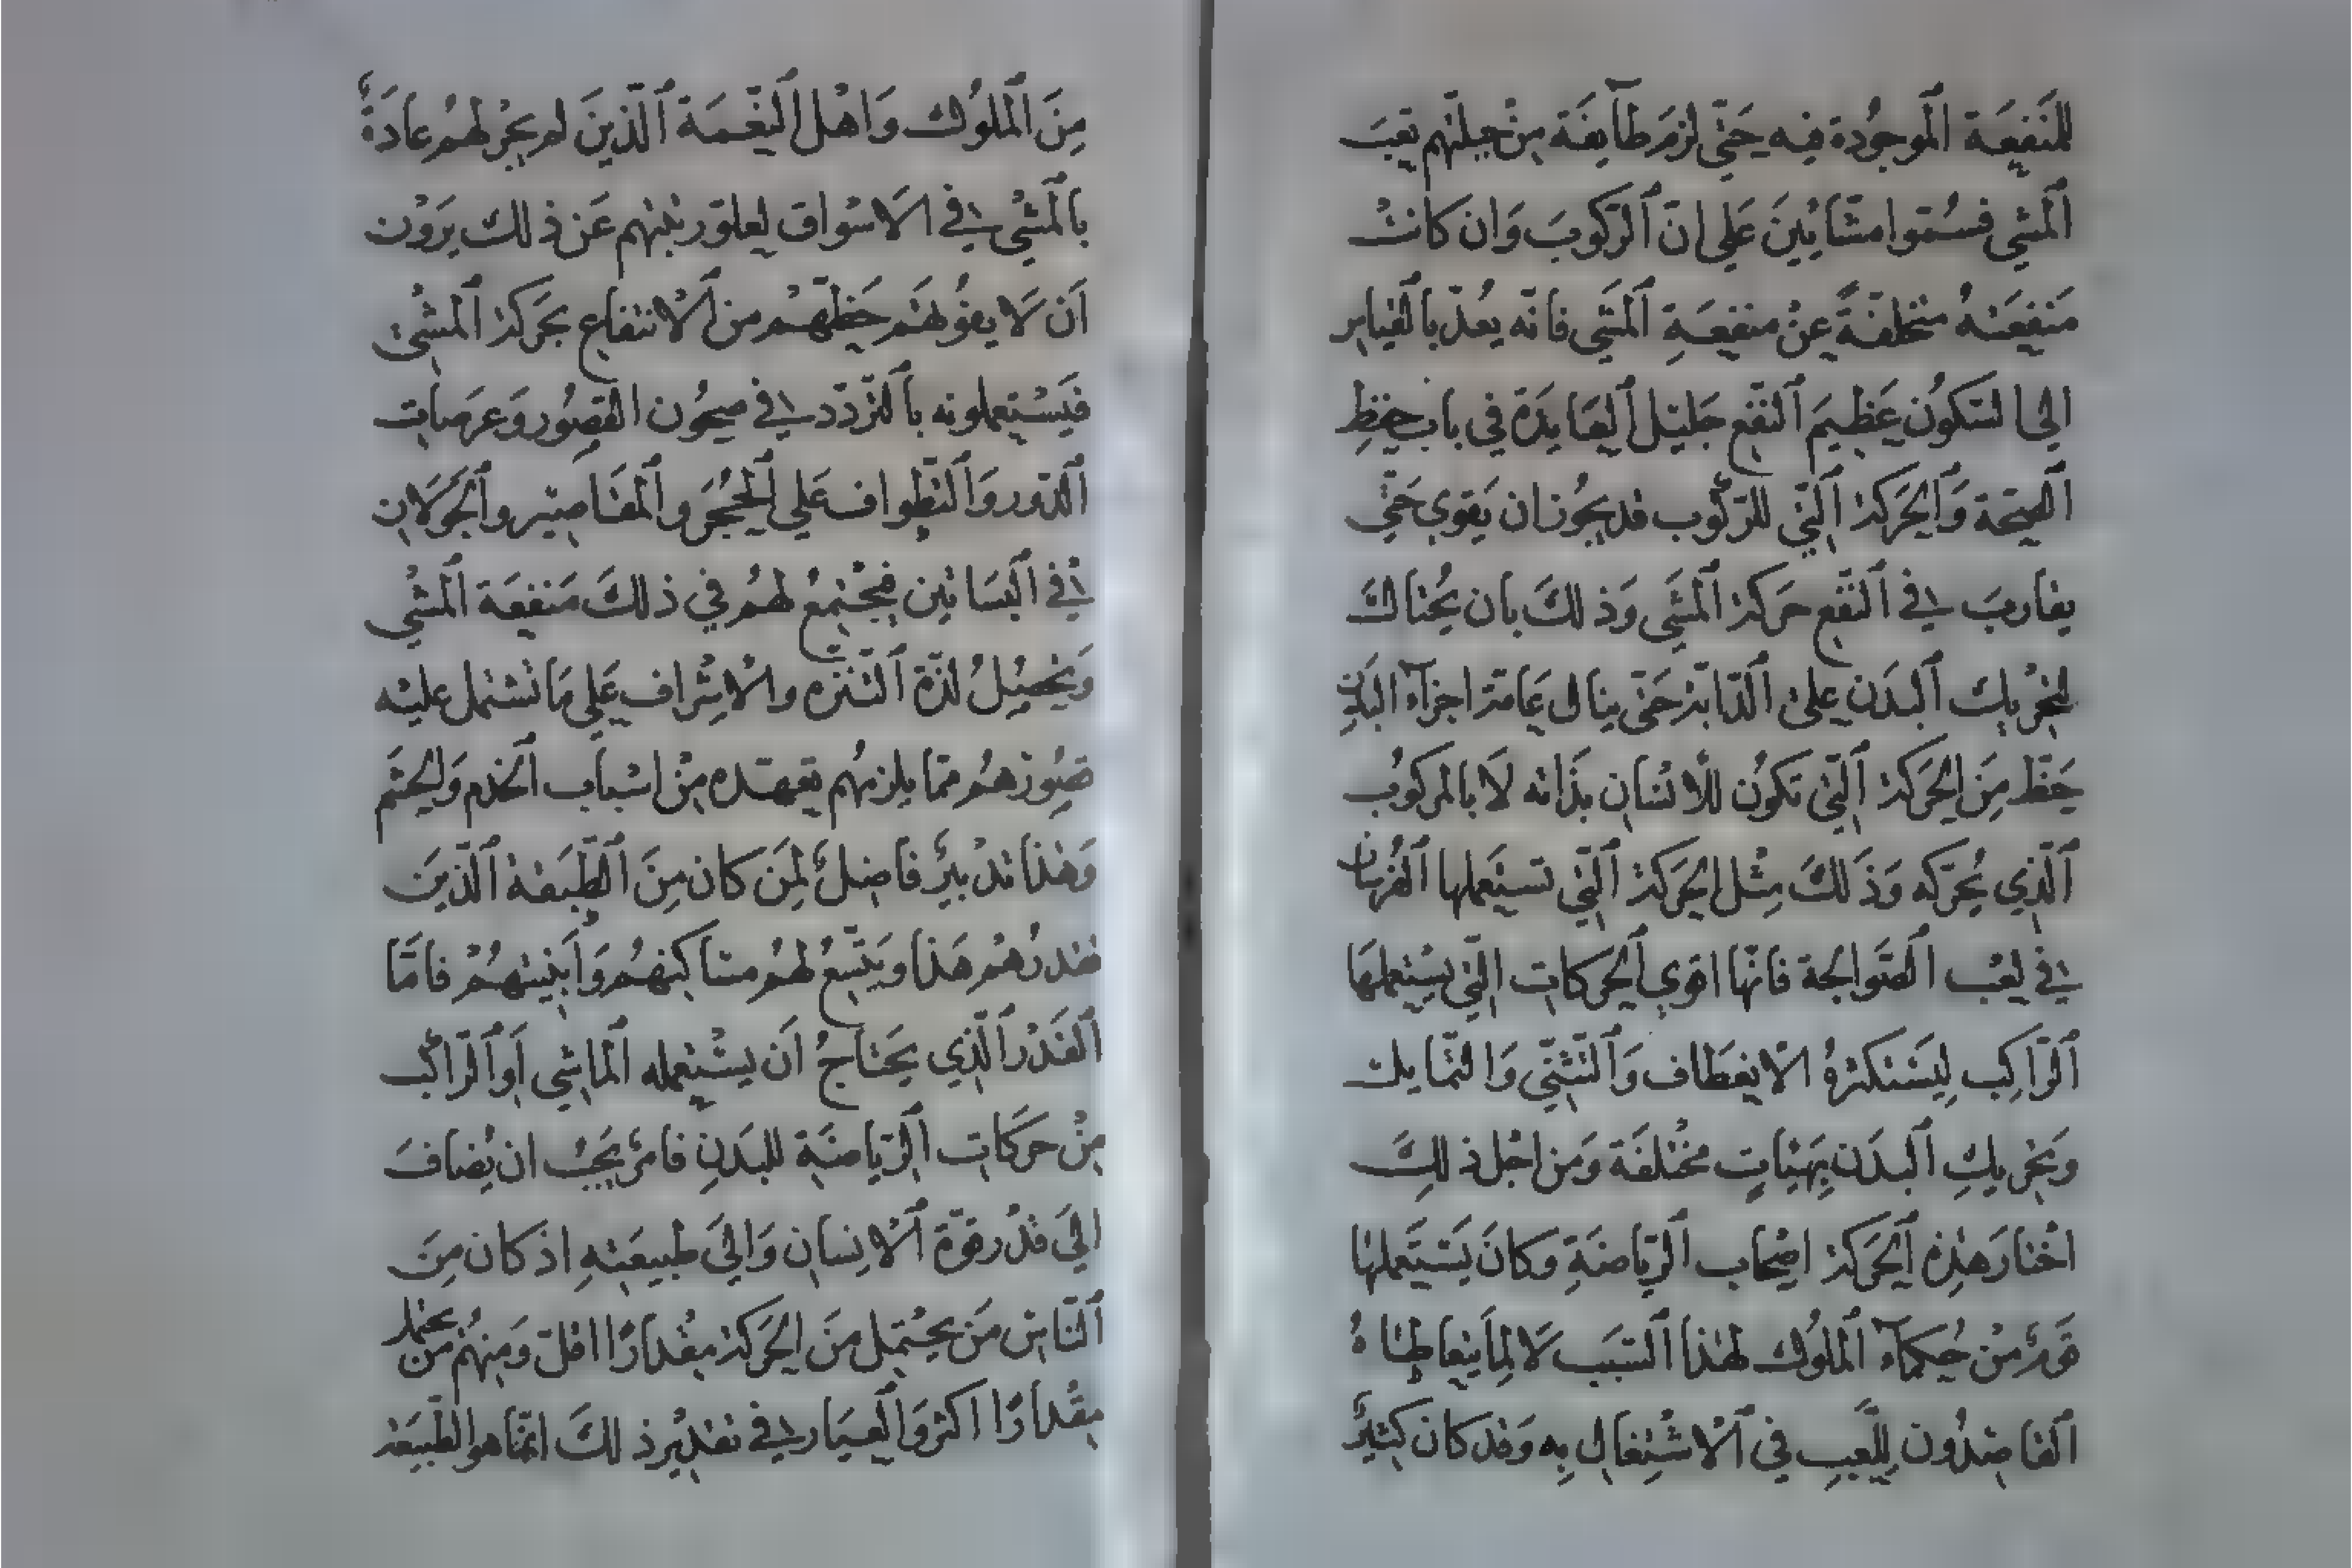 للمنفعة الموجودة فيه حتى لزم طآيفة من جملتهم تعب
المشي فسموا مشائين على ان الركوب وان كانت
منفعته متخلفة عن منفعة المشي فانه يعد بالقياس
الى السكون عظيم النفع جليل العايدة في باب حفظ
الصحة والحركة التي للركوب قد يجوز ان يقوى حتى
يقارب في النفع حركة المشي وذلك بان يحتاك
لتحريك البدن على الدابة حتى ينال عامة اجزآء البدن
حظ من الحركة التي تكون للانسان بذاته لا بالمركوب
الذي يحركه وذلك مثل الحركة التي تستعملها الفرسان
في لعب الصوالجة فانها اقوى الحركات التي يستعملها
الراكب ليستكثره الانعطاف والتثني والتمايل
وتحريك البدن بهيات مختلفة ومن اجل ذلك
اختار هذه الحركة اصحاب الرياضة وكان يستعملها
قوم من حكمآء الملوك لهذا السبب لا لما يتعاطاه
القاصدون للعب في الاشتغال به وقد كان كثير
من الملوك واهل النعمة الذين لم يجر لهم عادة
بالمشي في الاسواق لعلو رتبتهم عن ذلك يرون
ان لا يفوتهم حظهم من الانتفاع بحركة المشي
فيستعملونه بالتردد في صحون القصور وعرصات
الدور والتطواف على الحجر والمقاصير والجولان
في البساتين فيجتمع لهم في ذلك منفعة المشي
وتحصيل لذة التنزه والاشراف على ما تشتمل عليه
قصورهم مما يلزمهم تعهده من اسباب الخدم والحشم
وهذا تدبير فاضل لمن كان من الطبقة الذين
قدرهم هذا ويتسع لهم مساكنهم وابنيتهم فاما
القدر الذي يحتاج ان يستعمله الماشي او الراكب
من حركات الرياضة للبدن فامر يجب ان يضاف
الى قدر قوة الانسان والى طبيعته اذ كان من
الناس من يحتمل من الحركة مقدارا اقل ومنهم من يحتمل
مقدارا اكثر والعيار في تقدير ذلك انما هو الطبيعة